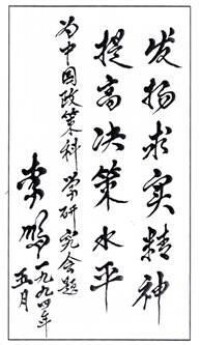 发扬求实精神
提高决策水平
为中国政策科学研究会题
李鹏 一九九四年
五月